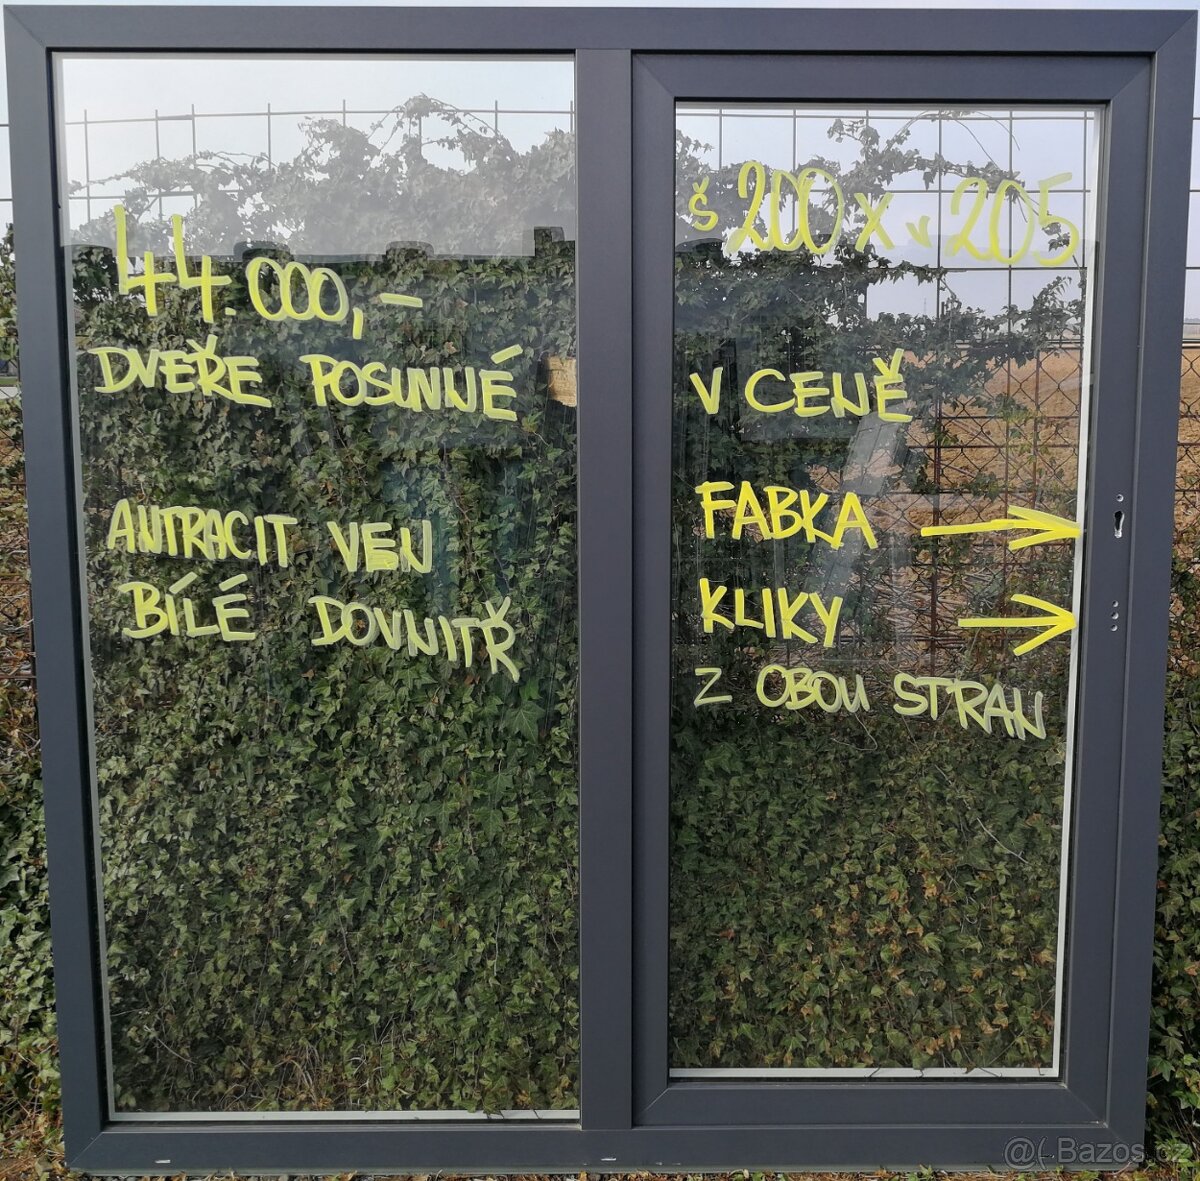 44.000,-
DVEŘE POSUNNÉ
ANTRACIT VEN
BÍLÉ DOVNITŘ
š 200 x v 205
V CENĚ
FABKA →
KLIKY →
Z OBOU STRAN
@( Bazos.cz